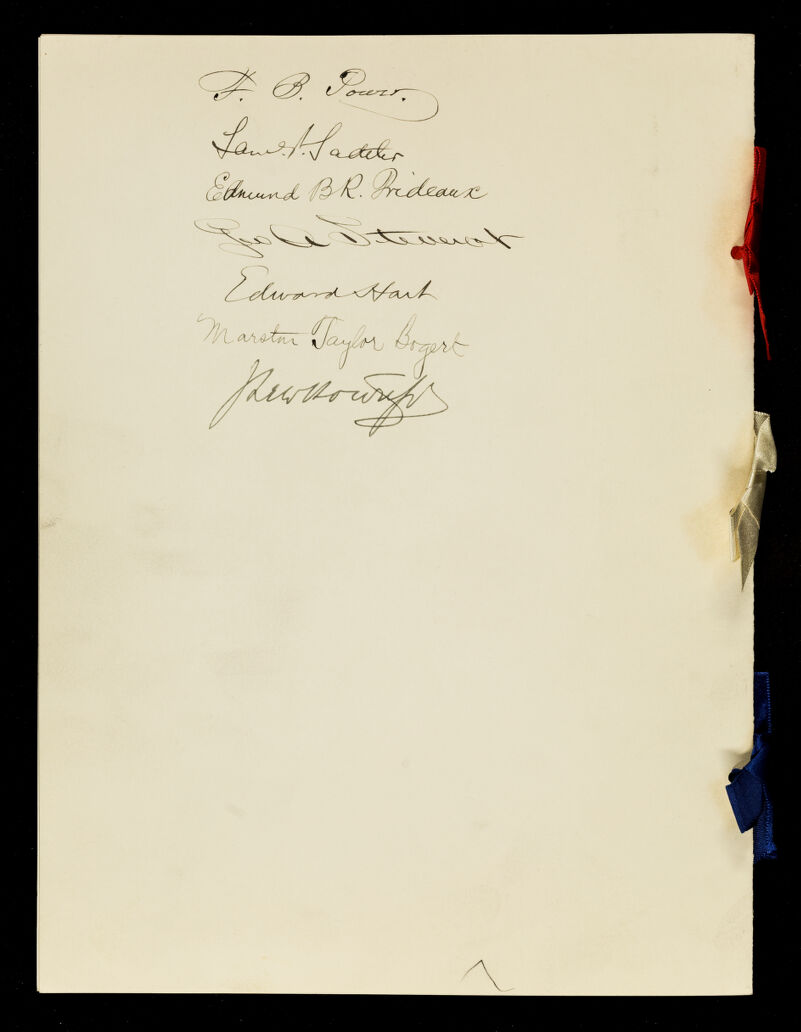 F. B. Power.
Saml. P. Sadtler
Edmund B R. Prideaux
Geo A
Edward Hart
Marston Taylor Bogert